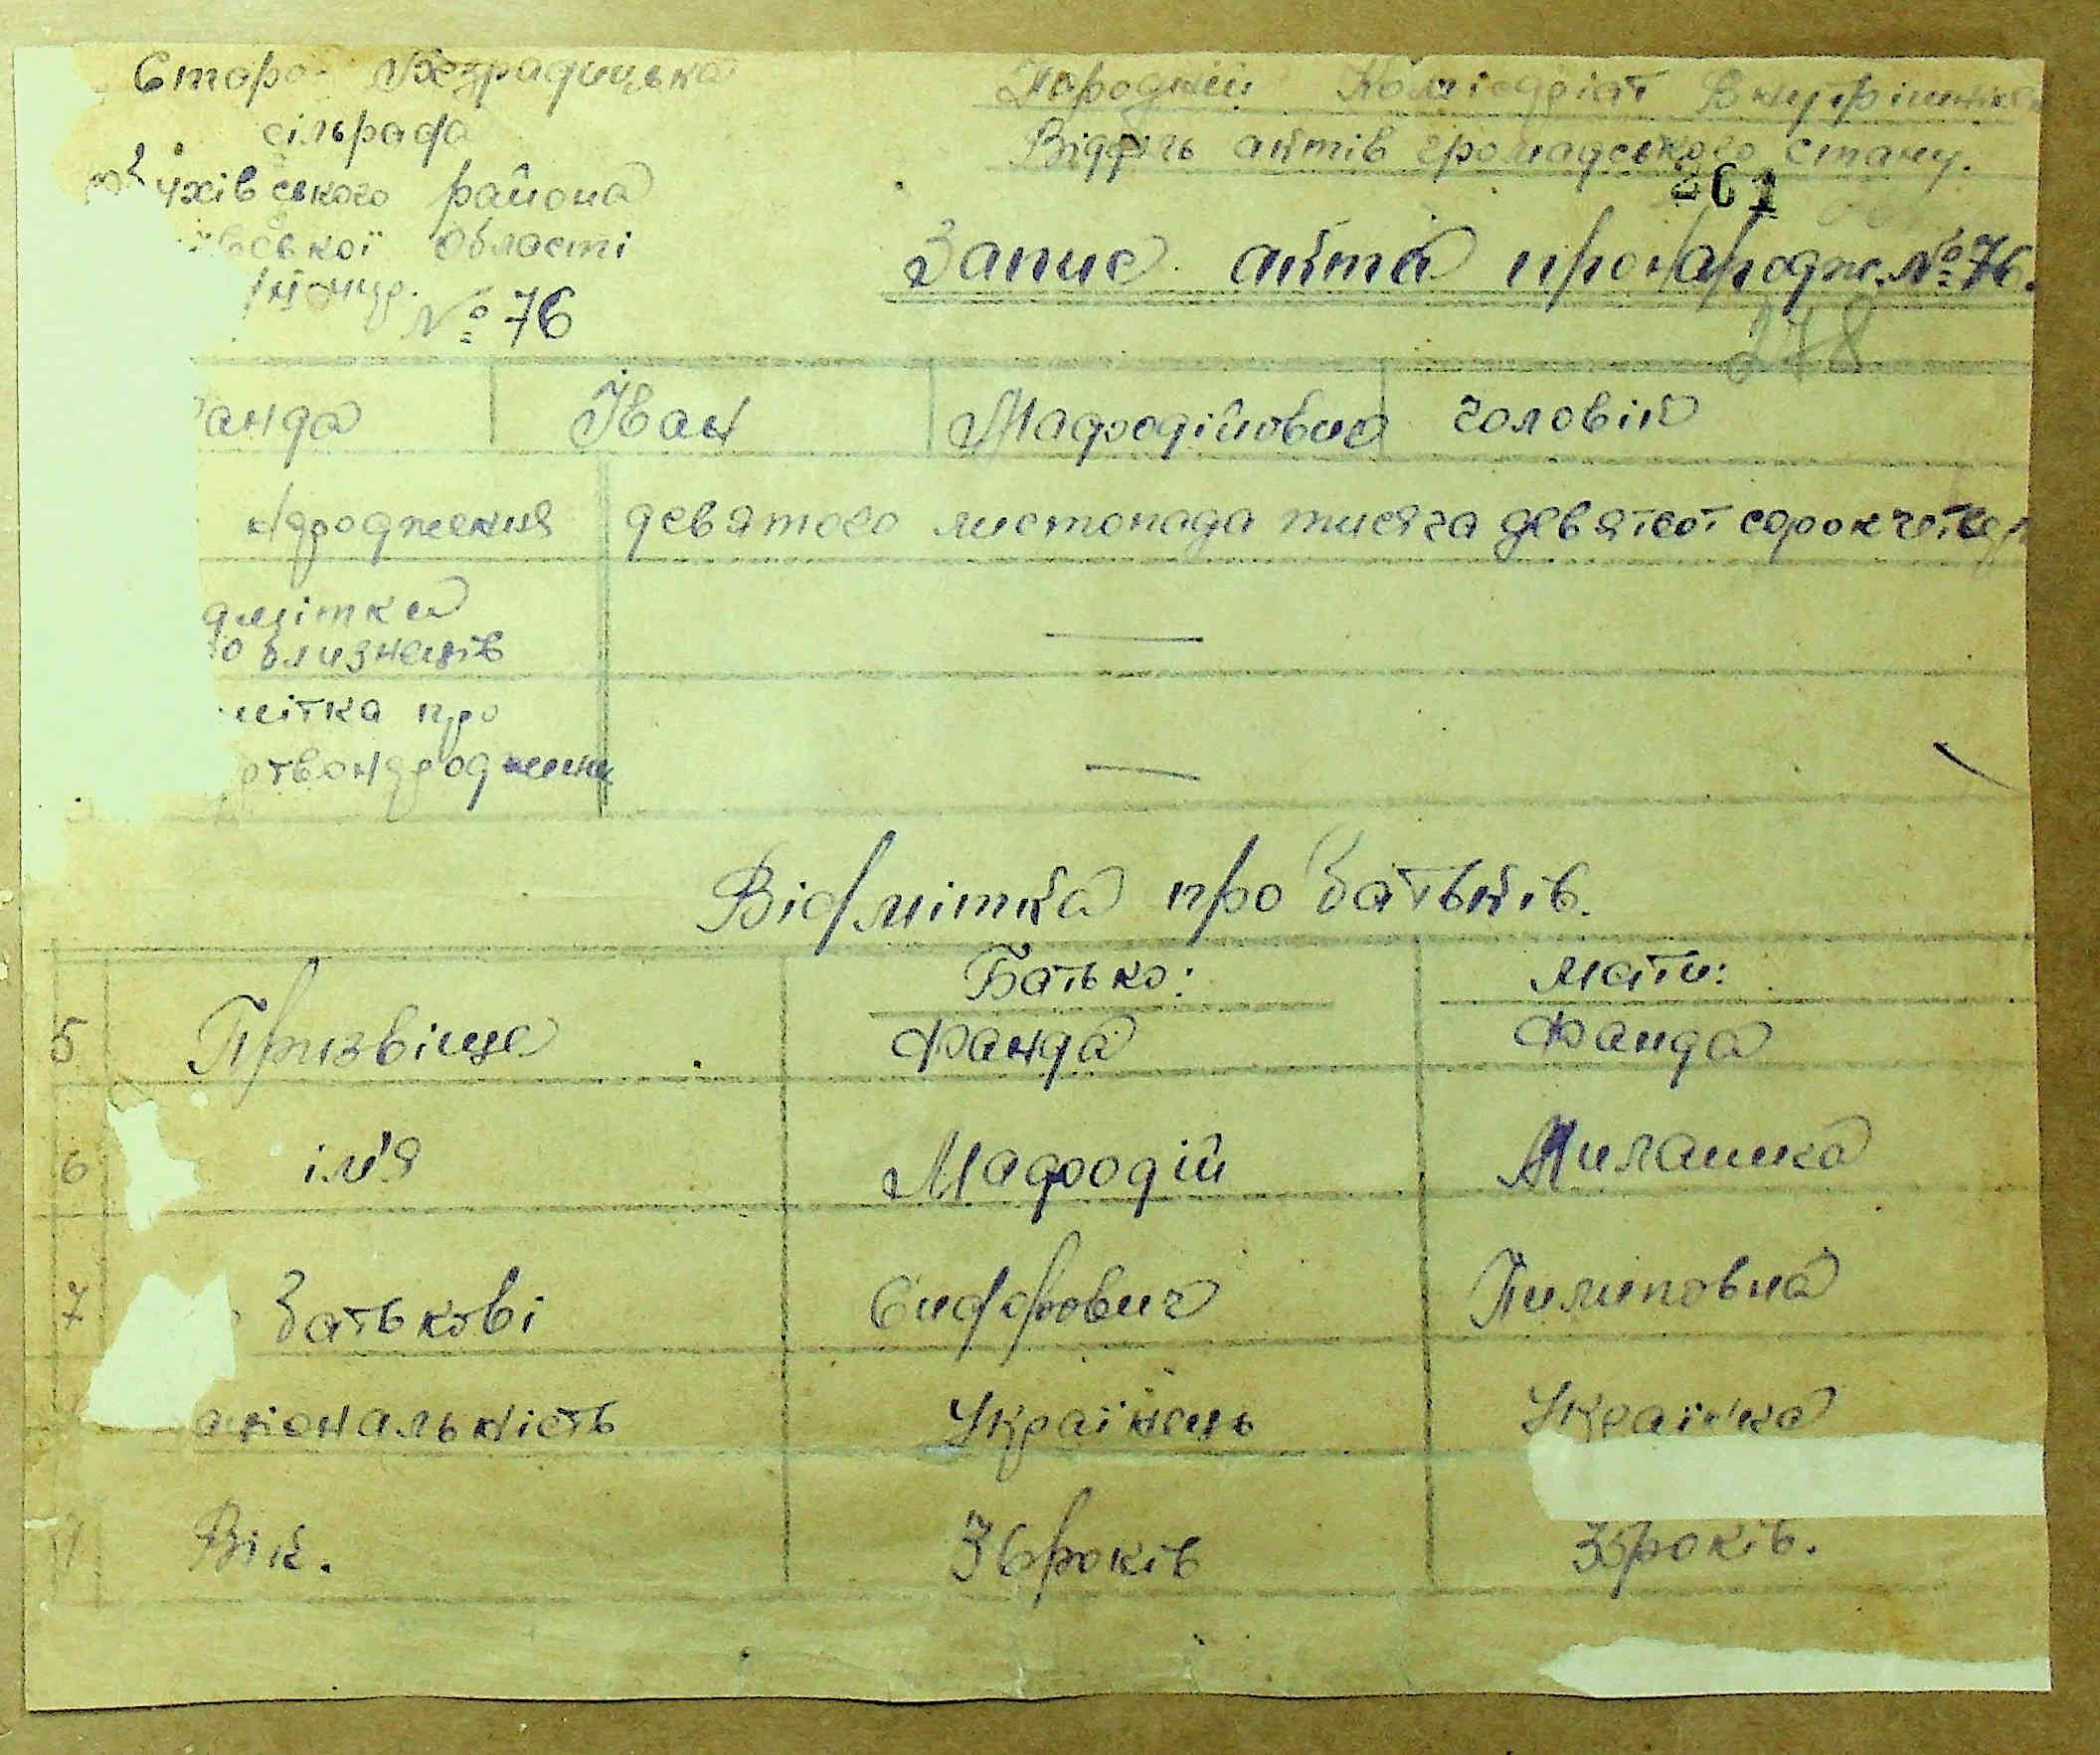 Старо-Безрадицька
сільрада
ухівського района
вської области
№ 76
Народній Комісаріат Внутрішніх
Відділ актів громадського стану.
261
Запис акта про народж. № 76.
278
анда Іван Мафодійович чоловік
народження девятого листопада тисяча девятсот сорок четвер
дмітка
о близнеців
мітка про
ртвонародження
Відмітка про батьків.
Батько: Мати:
5 Призвіще Фанда Фанда
6 імя Мафодій Миланка
7 батькові Сидорович Пилиповна
аціональність Українець Українка
Вік. 36 років 33 років.